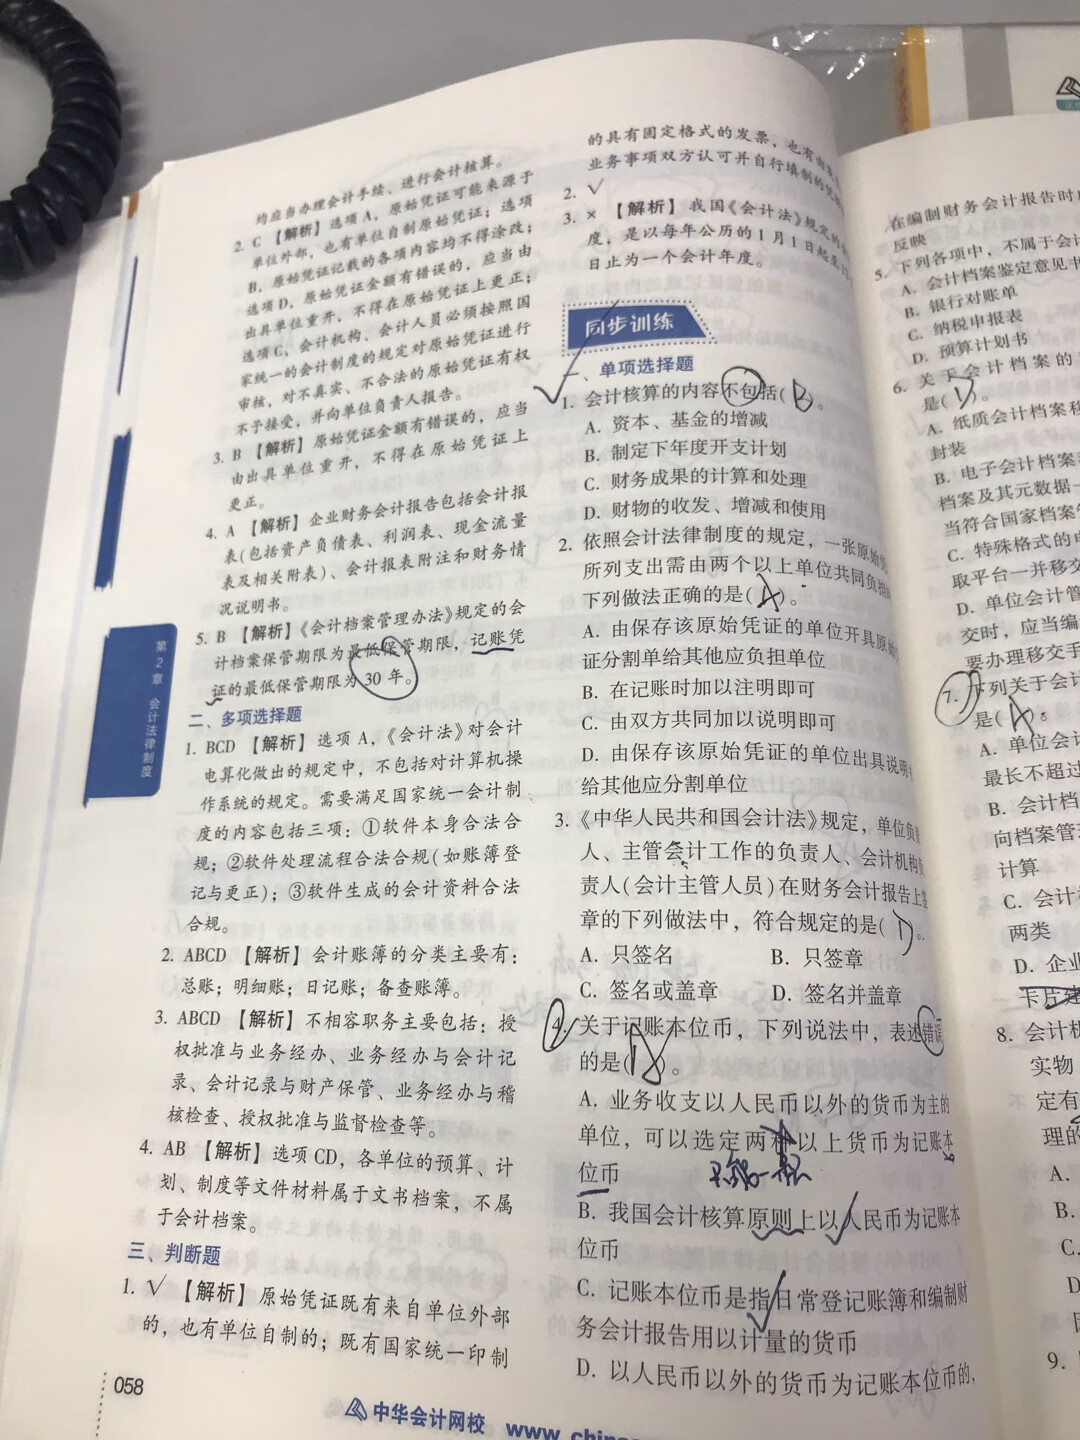 均应当办理会计手续、进行会计核算。
2. C 【解析】选项A，原始凭证可能来源于
单位外部，也有单位自制原始凭证；选项
B，原始凭证记载的各项内容均不得涂改；
选项D，原始凭证金额有错误的，应当由
出具单位重开，不得在原始凭证上更正；
选项C，会计机构、会计人员必须按照国
家统一的会计制度的规定对原始凭证进行
审核，对不真实、不合法的原始凭证有权
不予接受，并向单位负责人报告。
3. B 【解析】原始凭证金额有错误的，应当
由出具单位重开，不得在原始凭证上
更正。
4. A 【解析】企业财务会计报告包括会计报
表(包括资产负债表、利润表、现金流量
表及相关附表)、会计报表附注和财务情
况说明书。
5. B 【解析】《会计档案管理办法》规定的会
计档案保管期限为最低保管期限，记账凭
证的最低保管期限为30年。
二、多项选择题
1. BCD 【解析】选项A，《会计法》对会计
电算化做出的规定中，不包括对计算机操
作系统的规定。需要满足国家统一会计制
度的内容包括三项：①软件本身合法合
规；②软件处理流程合法合规(如账簿登
记与更正)；③软件生成的会计资料合法
合规。
2. ABCD 【解析】会计账簿的分类主要有：
总账；明细账；日记账；备查账簿。
3. ABCD 【解析】不相容职务主要包括：授
权批准与业务经办、业务经办与会计记
录、会计记录与财产保管、业务经办与稽
核检查、授权批准与监督检查等。
4. AB 【解析】选项CD，各单位的预算、计
划、制度等文件材料属于文书档案，不属
于会计档案。
三、判断题
1. √ 【解析】原始凭证既有来自单位外部
的，也有单位自制的；既有国家统一印制
058
第2章 会计法律制度
的具有固定格式的发票，也有由
业务事项双方认可并自行填制的凭
2. √
3. × 【解析】我国《会计法》规定的
度，是以每年公历的1月1日起至
日止为一个会计年度。
同步训练
一、单项选择题
1. 会计核算的内容不包括( B )。
A. 资本、基金的增减
B. 制定下年度开支计划
C. 财务成果的计算和处理
D. 财物的收发、增减和使用
2. 依照会计法律制度的规定，一张原始
所列支出需由两个以上单位共同负担
下列做法正确的是( A )。
A. 由保存该原始凭证的单位开具原始
证分割单给其他应负担单位
B. 在记账时加以注明即可
C. 由双方共同加以说明即可
D. 由保存该原始凭证的单位出具说明
给其他应分割单位
3. 《中华人民共和国会计法》规定，单位负
人、主管会计工作的负责人、会计机构
责人(会计主管人员)在财务会计报告上签
章的下列做法中，符合规定的是( D )。
A. 只签名 B. 只签章
C. 签名或盖章 D. 签名并盖章
4. 关于记账本位币，下列说法中，表述错误
的是( )。
A. 业务收支以人民币以外的货币为主的
单位，可以选定两种以上货币为记账本
位币
只能一种
B. 我国会计核算原则上以人民币为记账本
位币
C. 记账本位币是指日常登记账簿和编制财
务会计报告用以计量的货币
D. 以人民币以外的货币为记账本位币的，
中华会计网校 www.
在编制财务会计报告时
反映
5. 下列各项中，不属于会计
A. 会计档案鉴定意见书
B. 银行对账单
C. 纳税申报表
D. 预算计划书
6. 关于会计档案的
是( )。
A. 纸质会计档案移
封装
B. 电子会计档案
档案及其元数据一
当符合国家档案
C. 特殊格式的电
取平台一并移交
D. 单位会计管
交时，应当编
要办理移交手
7. 下列关于会计
是( A )。
A. 单位会计
最长不超过
B. 会计档
向档案管
计算
C. 会计
两类
D. 企业
卡片
8. 会计机
实物
定有
理的
A.
B.
C.
D
9.